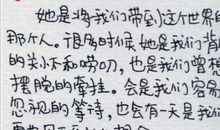 她是将我们带到这世界的
那个人。很多时候她是我们背后
的关怀和唠叨，也是我们曾想
摆脱的牵挂。会是我们容易
忽视的等待，也会有一天是我